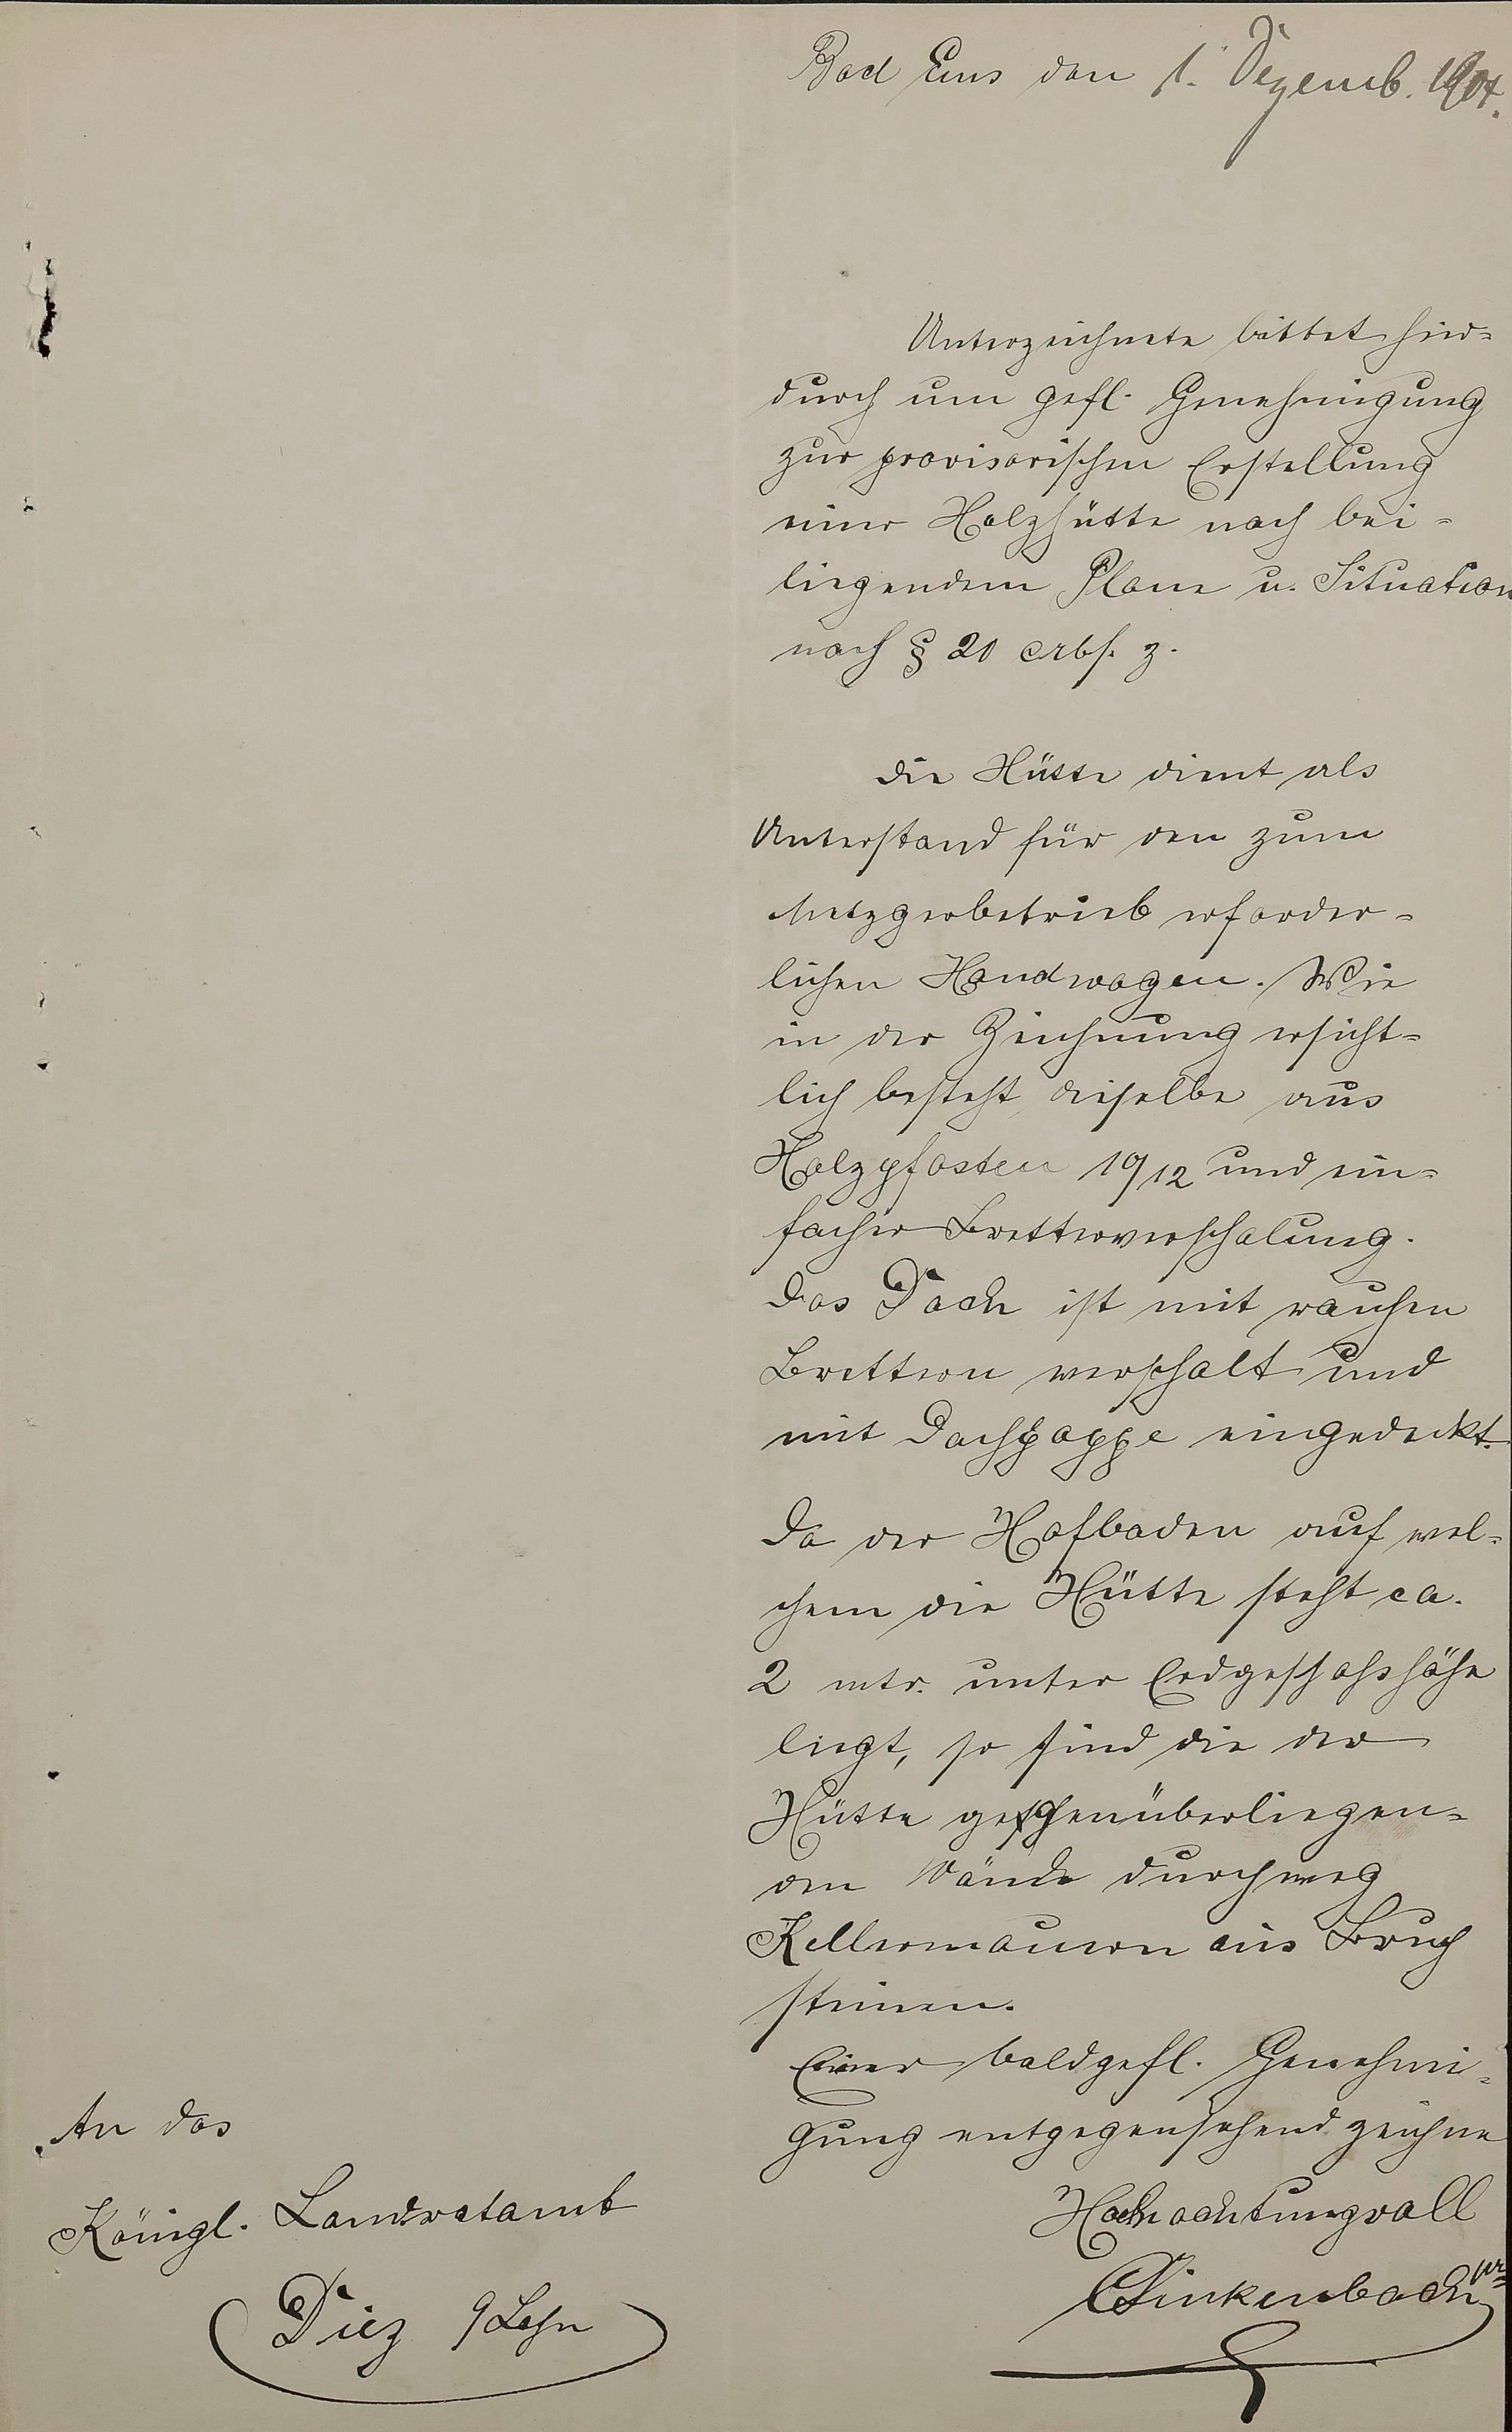 Bad Ems den 1. Dezemb. 1904.
Unterzeichnete bittet hier=
durch um gefl. Genehmigung
zur provisorischen Erstellung
einer Holzhütte nach bei=
liegendem Plane u. Situation
nach § 20 Abs. 3.
Die Hütte dient als
Unterstand für den zum
Metzgerbetrieb erforder=
lichen Handwagen. Wie
in der Zeichnung ersicht=
lich besteht dieselbe aus
Holzpfosten 10/12 und ein=
facher Bretterverschalung.
Das Dach ist mit rauhen
Brettern verschalt und
mit Dachpappe eingedeckt.
Da der Hofboden auf wel=
chem die Hütte steht ca.
2 mtr. unter Erdgeschosshöhe
liegt, so sind die der
Hütte gegenüberliegen=
den Wände durchweg
Kellermauern aus Bruch
steinen.
Einer baldgefl. Genehmi=
gung entgegensehend zeichne
Hochachtungsvoll
Linkenbach
An das
Königl. Landratamt
Diez a/Lahn